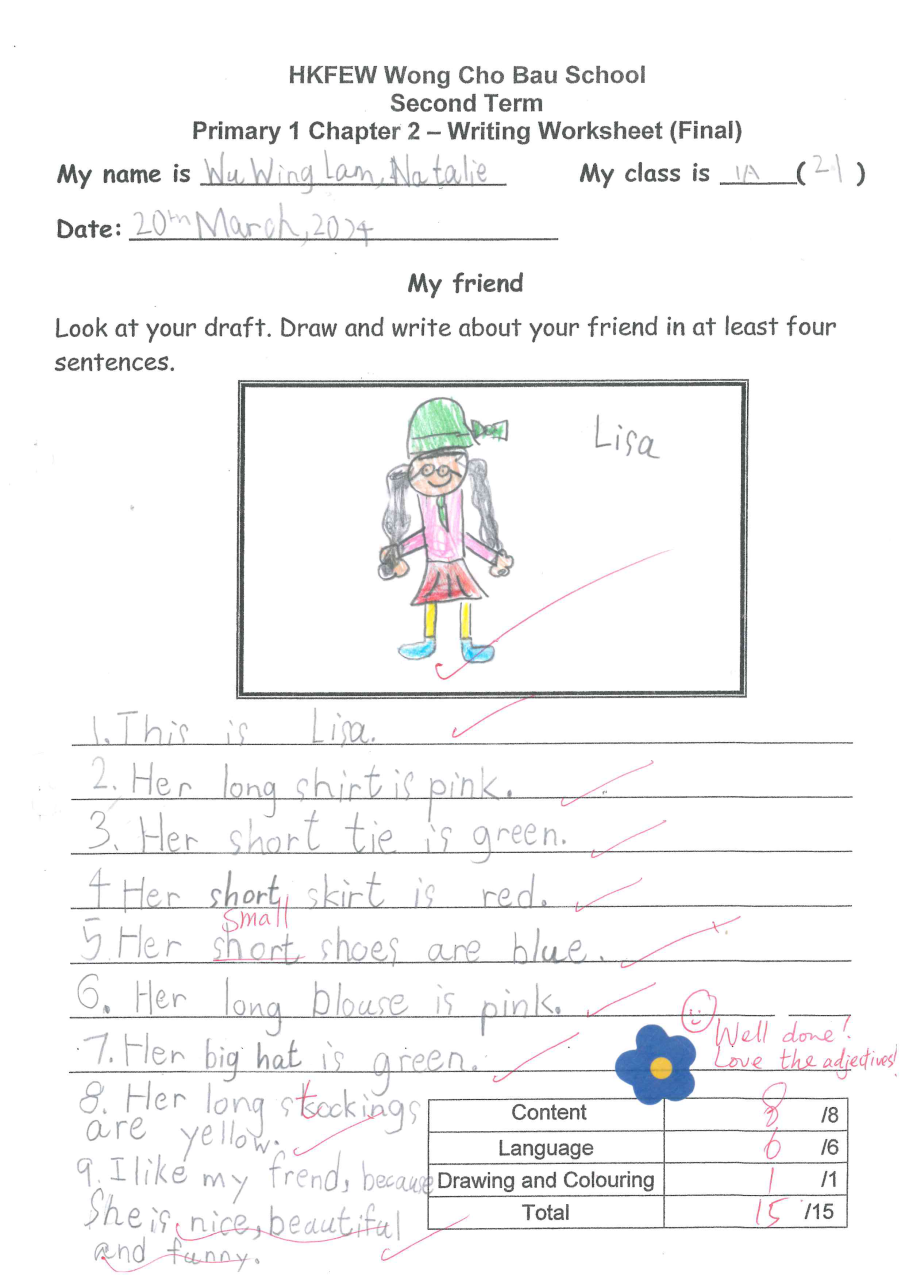 HKFEW Wong Cho Bau School
Second Term
Primary 1 Chapter 2 – Writing Worksheet (Final)
My name is Wu Wing Lam, Natalie My class is 1A (21)
Date: 20th March, 2024
My friend
Look at your draft. Draw and write about your friend in at least four
sentences.
Lisa
1. This is Lisa.
2. Her long shirt is pink.
3. Her short tie is green.
4 Her short skirt is red.
small
5. Her short shoes are blue.
6. Her long blouse is pink.
7. Her big hat is green.
Well done!
Love the adjectives!
8. Her long stockings
are yellow.
9. I like my frend, because
She is nice, beautiful
and funny.
Content 8 /8
Language 6 /6
Drawing and Colouring 1 /1
Total 15 /15